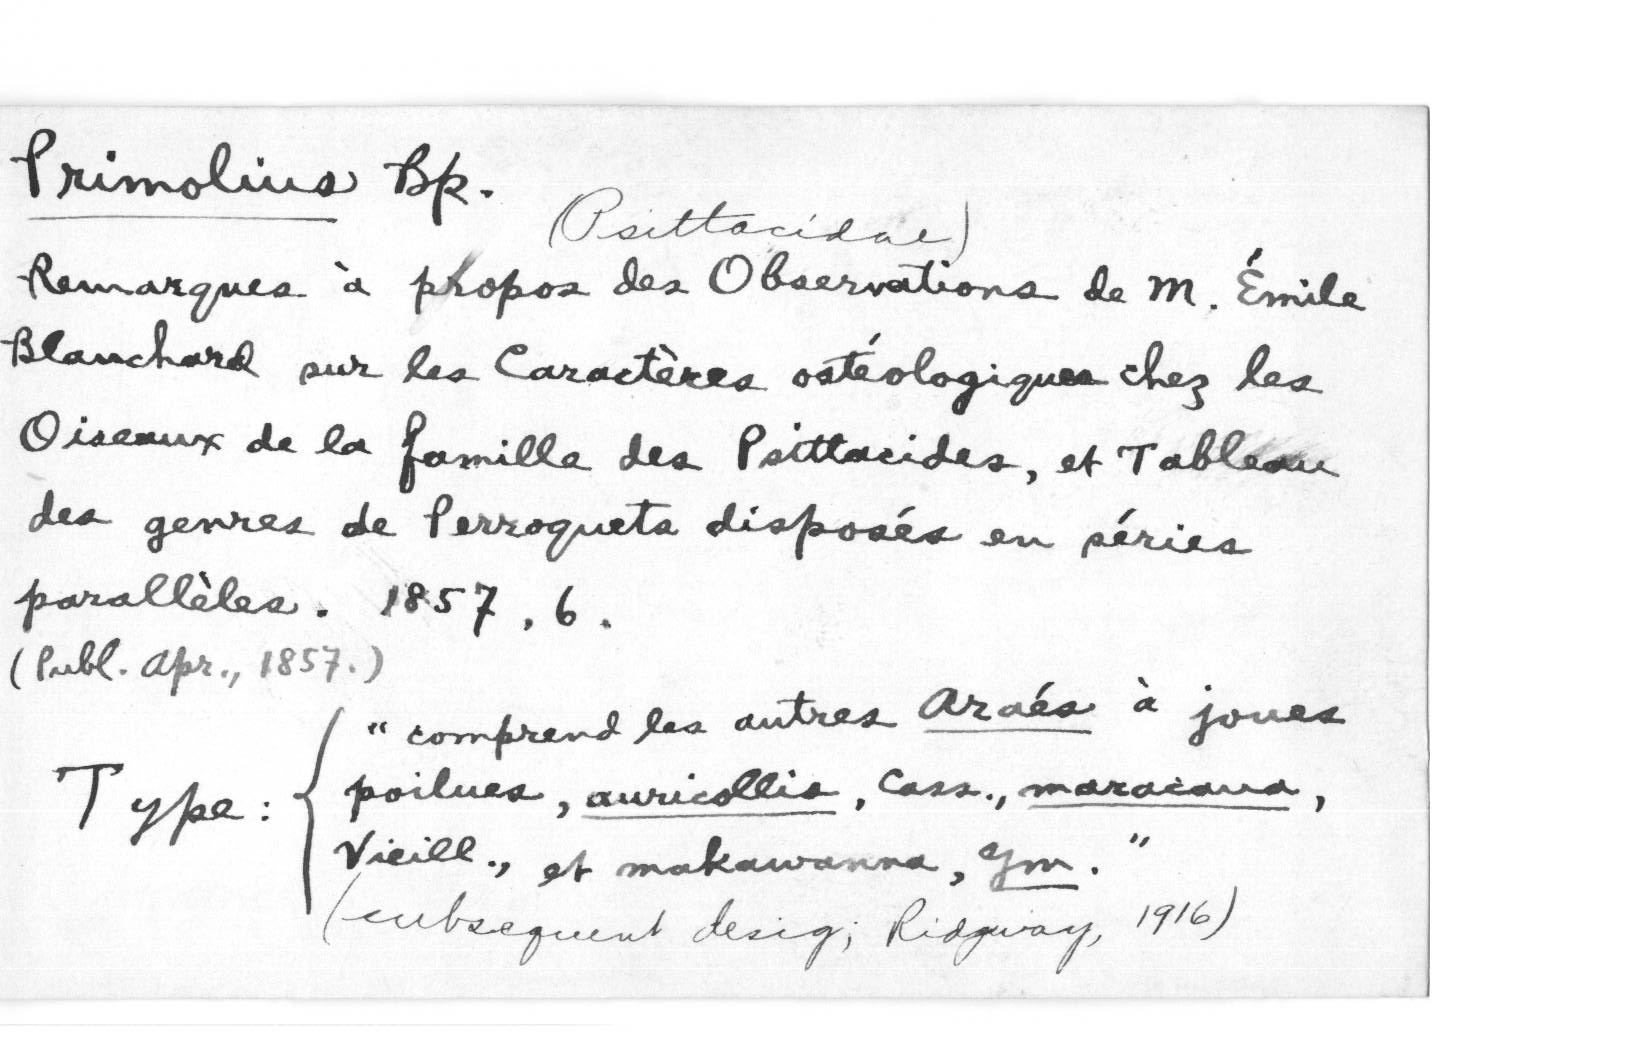 Primolius Bp.
(Psittacidae)
Remarques à propos des Observations de M. Émile
Blanchard sur les Caractères ostéologiques chez les
Oiseaux de la famille des Psittacides, et Tableau
des genres de Perroquets disposés en séries
parallèles. 1857, 6.
(Publ. Apr., 1857.)
"comprend les autres Araés à joues
poilues, auricollis, Cass., maracana,
Type:
Vieill., et makawanna, Gm."
(subsequent desig; Ridgway, 1916)